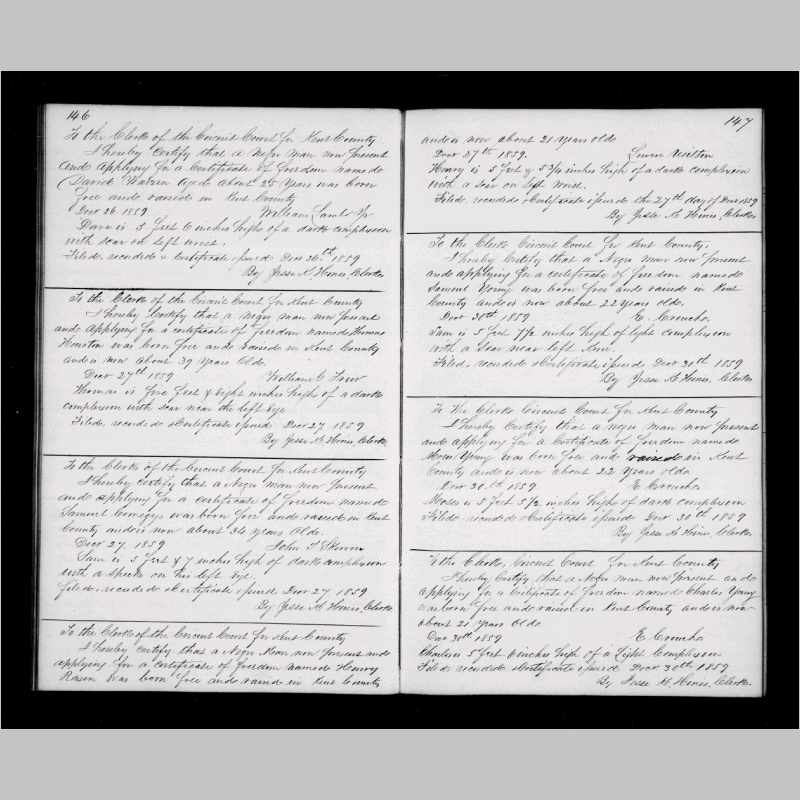 146
To the Clerk of the Circuit Court for Kent County
I hereby Certify that a Negro man now present
and applying for a Certificate of Freedom named
David Watson aged about 25 years was born
free and raised in Kent County
Decr 26 1859 William Lamb Jr
David is 5 feet 6 inches high of a dark complexion
with scar on left wrist.
Filed, recorded & Certificate issued Decr 26th 1859
By Jesse K. Hines, Clerk
To the Clerk of the Circuit Court for Kent County
I hereby Certify that a Negro man now present
and applying for a certificate of freedom named Thomas
Houston was born free and raised in Kent County
and is now about 39 years Old.
Decr 27th 1859 William C
Thomas is five feet & eight inches high of a dark
complexion with scar near the left eye
Filed, recorded & Certificate issued Decr 27 1859
By Jesse K. Hines, Clerk
To the Clerk of the Circuit Court for Kent County
I hereby Certify that a Negro Man now present
and applying for a certificate of freedom named
Samuel Comegys was born free and raised in Kent
County and is now about 34 years Old.
Decr 27. 1859 John T Skirven
Sam is 5 feet & 7 inches high of dark complexion
with a specks on his left eye.
Filed, recorded & Certificate issued Decr 27 1859
By Jesse K. Hines, Clerk
To the Clerk of the Circuit Court for Kent County
I hereby Certify that a Negro Man now present and
applying for a certificate of freedom named Henry
Rasin was born free and raised in Kent County
147
and is now about 21 years old
Decr 27th 1859.
Henry is 5 feet & 5 3/4 inches high of a dark complexion
with a scar on left wrist.
Filed, recorded & Certificate issued the 27th day of Decr 1859
By Jesse K. Hines, Clerk
To the Clerk Circuit Court for Kent County.
I hereby Certify that a Negro man now present
and applying for a certificate of freedom named
Samuel Young was born free and raised in Kent
County and is now about 22 years old.
Decr 30th 1859 E. Crouch
Sam is 5 feet 7 1/2 inches high of light complexion
with a scar near left
Filed, recorded & Certificate issued Decr 30th 1859
By Jesse K. Hines, Clerk
To the Clerk Circuit Court for Kent County
I hereby Certify that a negro man now present
and applying for a Certificate of freedom named
Moses Young was born free and raised in Kent
County and is now about 22 years Old
Decr 30th 1859 E Crouch
Moses is 5 feet 5 1/2 inches high of dark complexion
Filed recorded & Certificate issued Decr 30th 1859
By Jesse K. Hines, Clerk
To the Clerk, Circuit Court for Kent County
I hereby Certify that a Negro man now present and
applying for a Certificate of freedom named Charles Young
was born free and raised in Kent County and is now
about 21 years Old
Decr 30th 1859 E. Crouch
Charles is 5 feet 6 inches high of a Light Complexion
Filed recorded & Certificate issued Decr 30th 1859
By Jesse K. Hines, Clerk